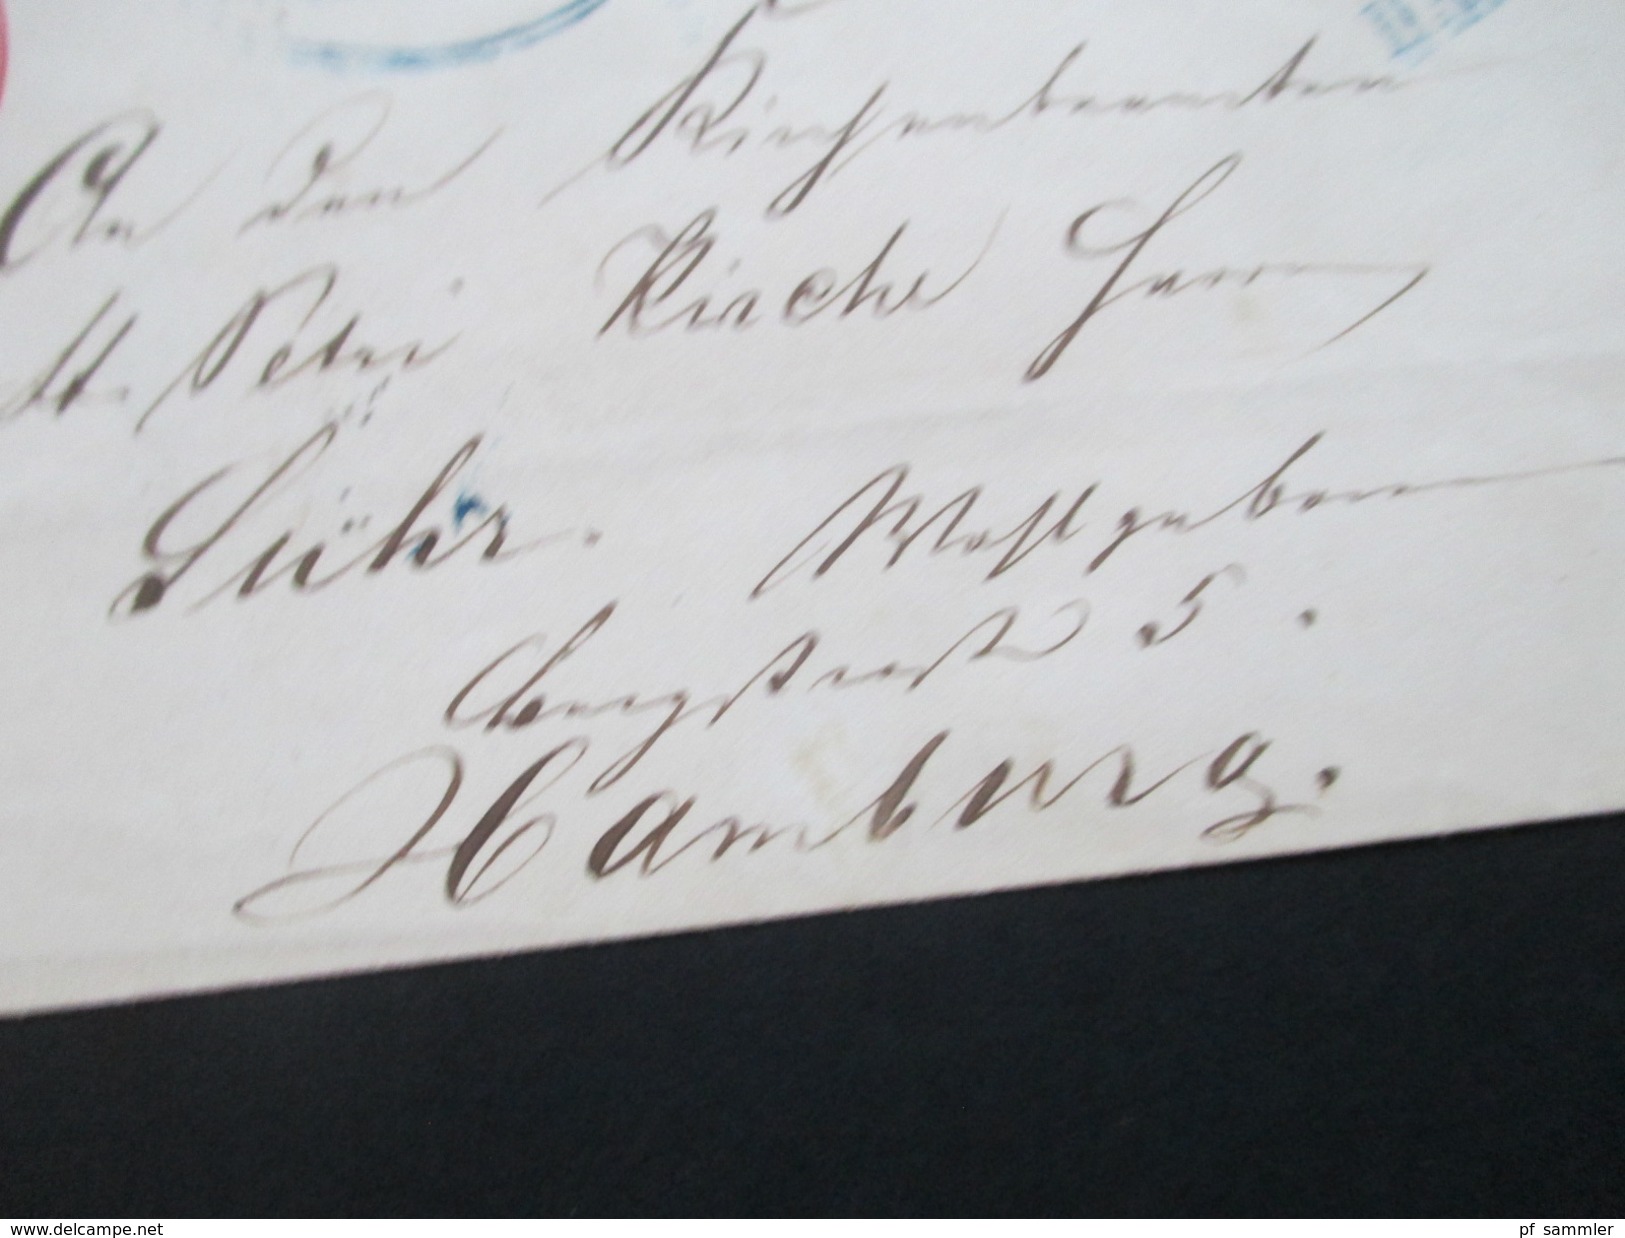 An den Kirchenbeamten
St. Petri Kirche Herrn
Lühr. Wohlgeboren
Bergstraße 5.
Hamburg.
www.delcampe.net
pf_sammler